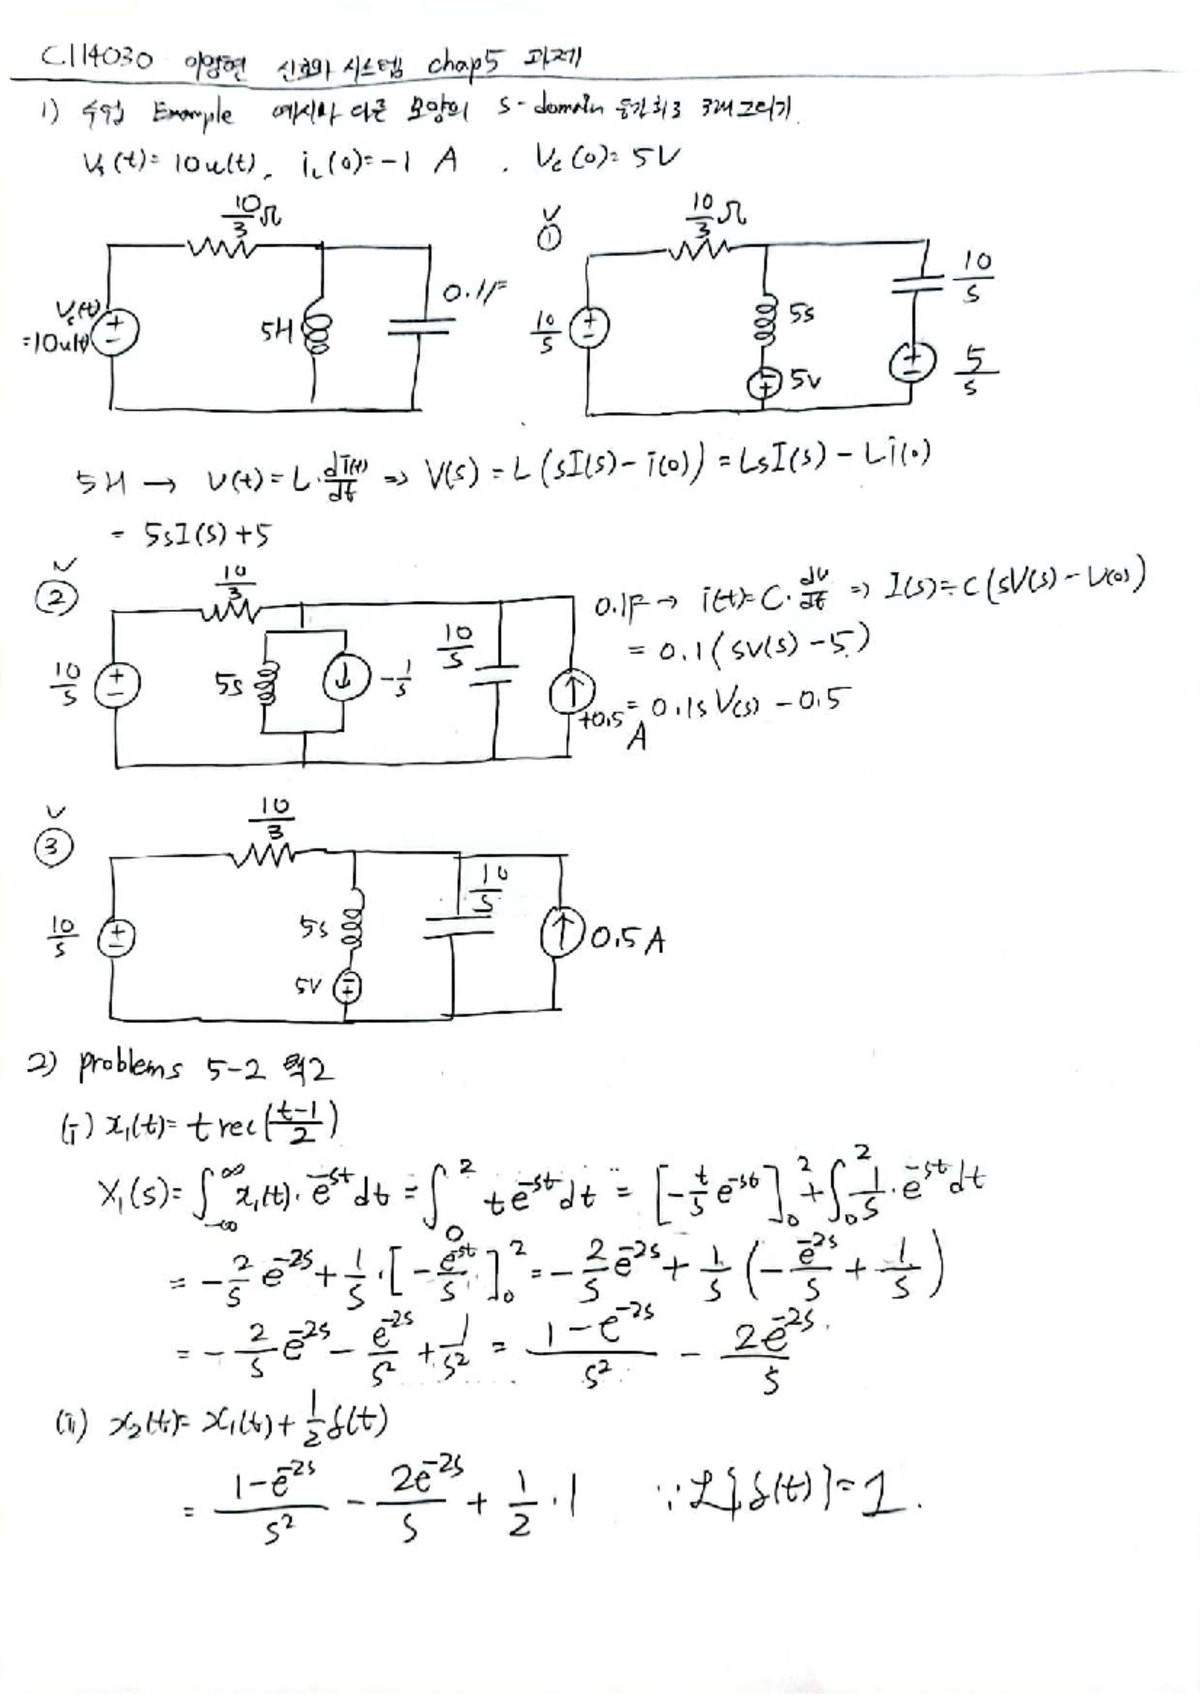 C114030 이양현 신호와 시스템 chap5 과제
1) 수업 Example 예시와 다른 모양의 s-domain 등가회로 3개 그리기.
Vs(t)=10u(t), iL(0)=-1 A , Vc(0)=5V
10/3 Ω
Vs(t)=10u(t)
5H
0.1F
①
10/3 Ω
10/s
5s
5v
10/s
5/s
5H → v(t)=L·di(t)/dt ⇒ V(s)=L(sI(s)-i(0))=LsI(s)-Li(0)
= 5sI(s)+5
②
10/3
10/s
5s
-1/s
10/s
+0.5 A
0.1F → i(t)=C·dv/dt ⇒ I(s)=C(sV(s)-V(0))
= 0.1(sV(s)-5)
= 0.1sV(s)-0.5
③
10/3
10/s
5s
5V
10/s
0.5A
2) problems 5-2
(i) x₁(t)= t rec((t-1)/2)
X₁(s)= ∫_{-∞}^{∞} x₁(t)·e^{-st}dt = ∫_0^2 te^{-st}dt = [-t/s e^{-st}]_0^2 + ∫_0^2 1/s·e^{-st}dt
= -2/s e^{-2s} + 1/s·[-e^{-st}/s]_0^2 = -2/s e^{-2s} + 1/s(-e^{-2s}/s + 1/s)
= -2/s e^{-2s} - e^{-2s}/s² + 1/s² = (1-e^{-2s})/s² - 2e^{-2s}/s.
(ii) x₂(t)= x₁(t)+ 1/2 δ(t)
= (1-e^{-2s})/s² - 2e^{-2s}/s + 1/2·1 ∵ ℒ{δ(t)}=1.